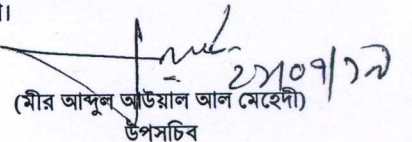 ২৯/০৭/১৯
(মীর আব্দুল আউয়াল আল মেহেদী)
উপসচিব